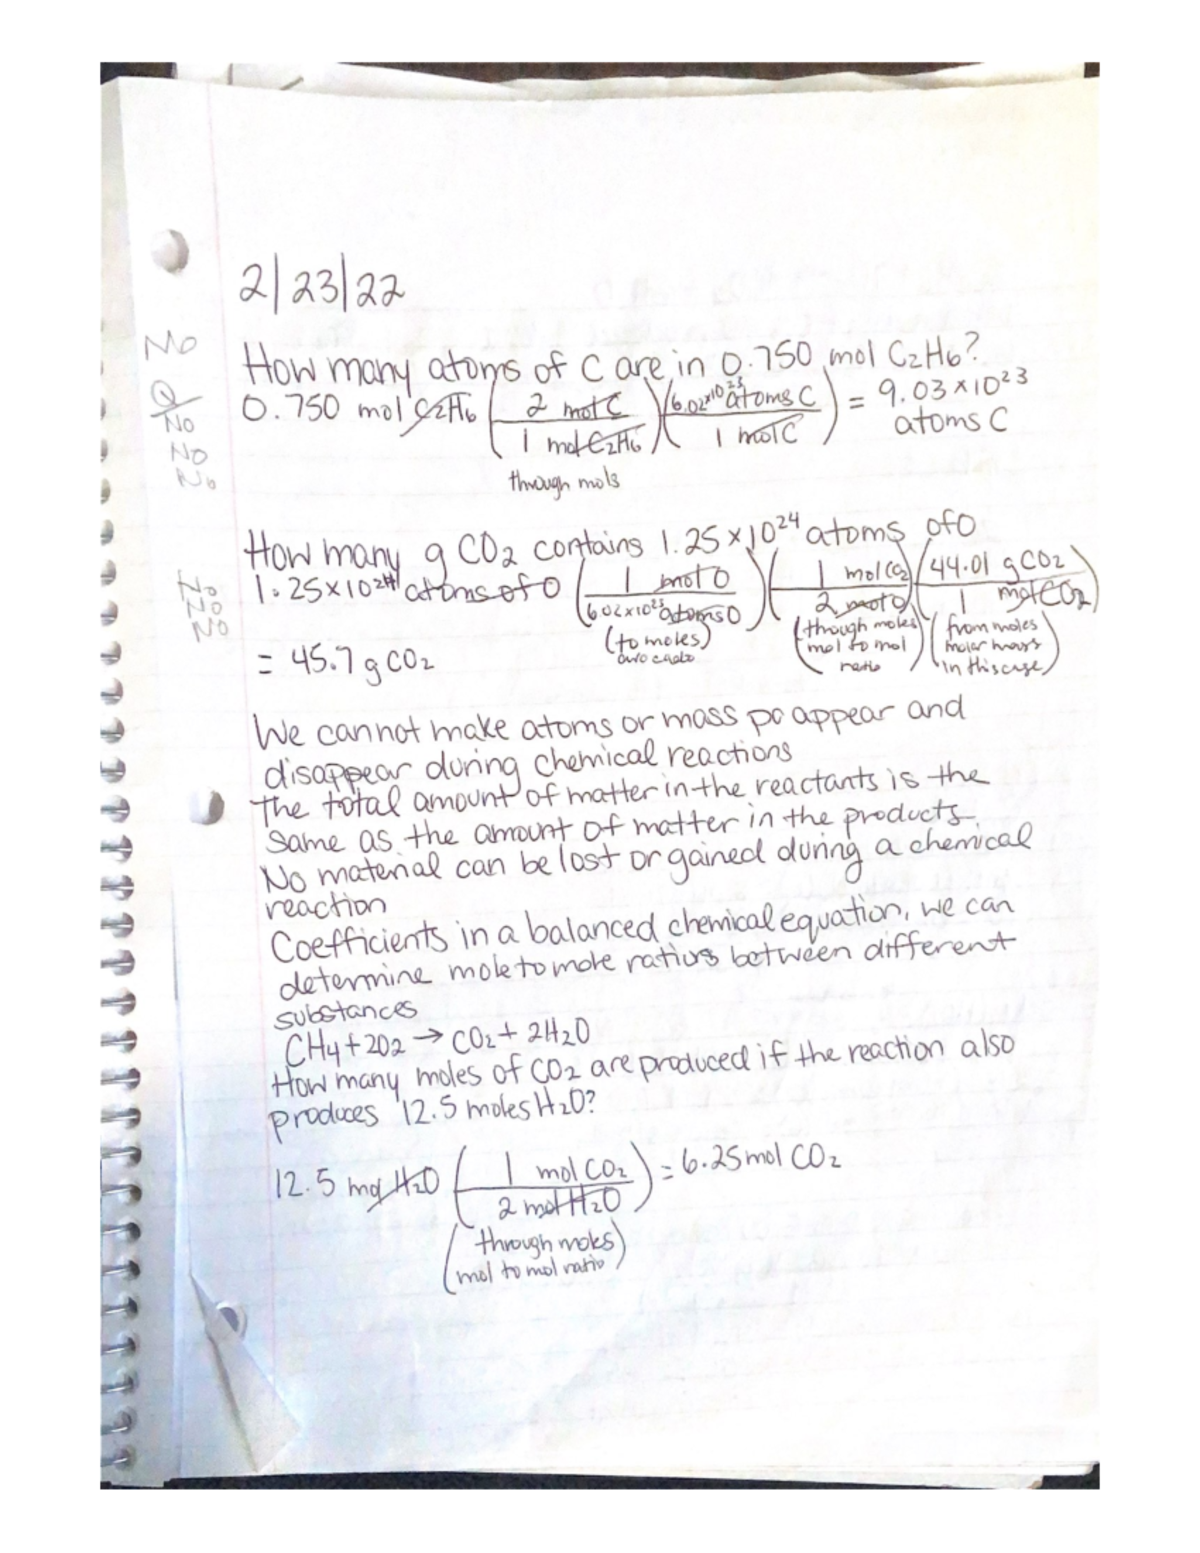 2/23/22
No
How many atoms of C are in 0.750 mol C2H6?
0.750 mol C2H6 (2 mol C / 1 mol C2H6)(6.02x10^23 atoms C / 1 mol C) = 9.03 x 10^23
atoms C
No
No
through mols
How many g CO2 contains 1.25 x 10^24 atoms of O
1.25x10^24 atoms of O (1 mol O / 6.02x10^23 atoms O)(1 mol CO2 / 2 mol O)(44.01 g CO2 / 1 mol CO2)
(to moles)
(through moles mol to mol ratio)
(from moles molar mass in this case)
= 45.7 g CO2
We cannot make atoms or mass po appear and
disappear during chemical reactions
The total amount of matter in the reactants is the
same as the amount of matter in the products.
No material can be lost or gained during a chemical
reaction
Coefficients in a balanced chemical equation, we can
determine mole to mole ratios between different
substances
CH4 + 2O2 → CO2 + 2H2O
How many moles of CO2 are produced if the reaction also
produces 12.5 moles H2O?
12.5 mol H2O (1 mol CO2 / 2 mol H2O) = 6.25 mol CO2
(through moles
mol to mol ratio)